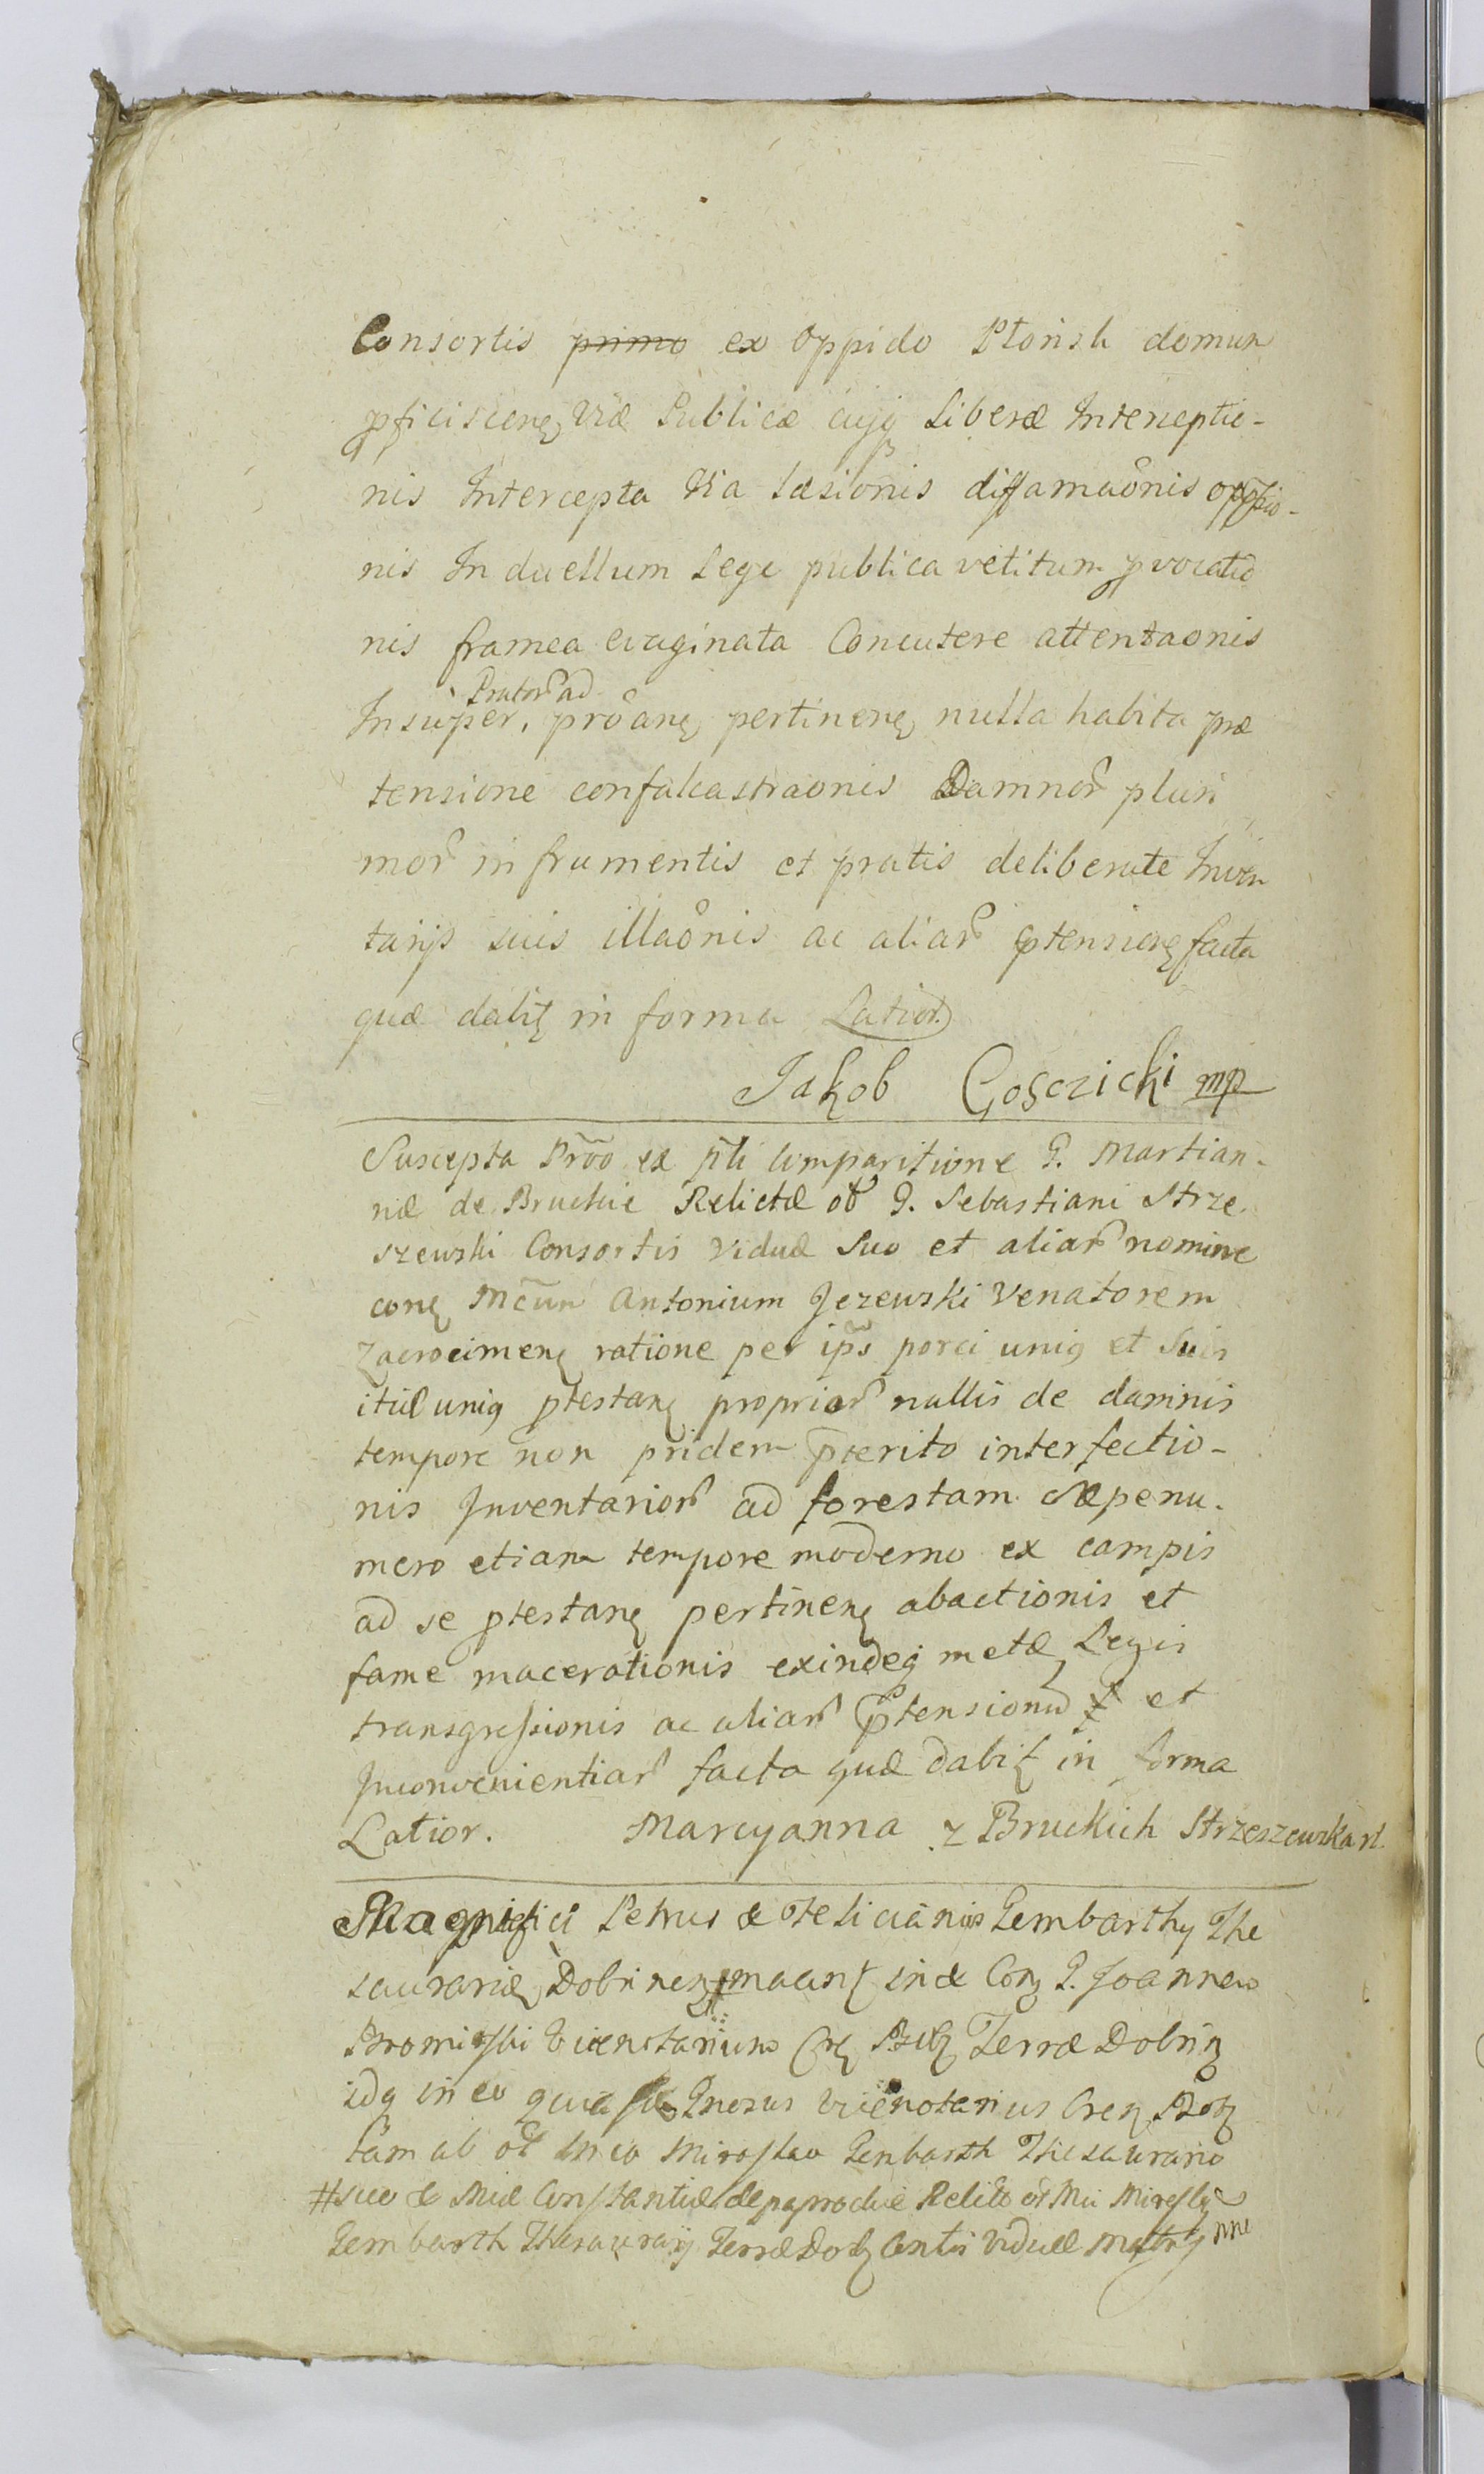 Consortis primo ex Oppido Płońsk domum
pficiscenę Viæ Publicæ cujq Liberæ Interceptio-
nis Intercepta Via læsionis diffamaonis
nis In duellum Lege publica vetitum pvocatio
nis framea evaginata Concutere attentaonis
Pratorũ ad
Insuper, proanę pertinenę nulla habita præ
tensione confalcastraonis Damnorũ pluri
morũ in frumentis et pratis deliberate Inven
tarijs suis illaonis ac aliarũ ptensionę facta
quæ dabitę in forma Latiori
Jakob Gosczicki mp
Suscepta Prõo ex pñti Comparitione G. Martian-
næ de Bruckie Relictæ oł G. Sebastiani Strze
szewski Consortis Viduæ Suo et aliarũ nomine
conę Mcũm Antonium Jezewski Venatorem
Zacrocimenę ratione per ips̃ porci uniq et Suis
itid uniq ptestanę propriorũ nullis de damnis
tempore non pridem p̃terito interfectio-
nis Inventariorũ ad forestam sæpenu-
mero etiam tempore moderno ex campis
ad se ptestanę pertinenę abactionis et
fame macerationis exindeq metæ Legis
transgressionis ac aliarũ p̃tensionũ et
Inconvenientiarũ facta quæ dabitę in forma
Latior. Marcyanna z Bruckich Strzeszewska
Magnifici Petrus & Felicianus Gembarthy The
saurariæ Dobrinenę inæ Conę G. Joannem
Bromirski Vicenotarium Terræ Dobrinę
idq in eo quia Gnosus Vicenotarius
tam ab oł Mco Miroslao Gembarth Thesaurario
#suo & Mcæ Constantiæ de paprockie Relictæ oł Mci
Gembarth Thesaurarij Terræ Viduæ